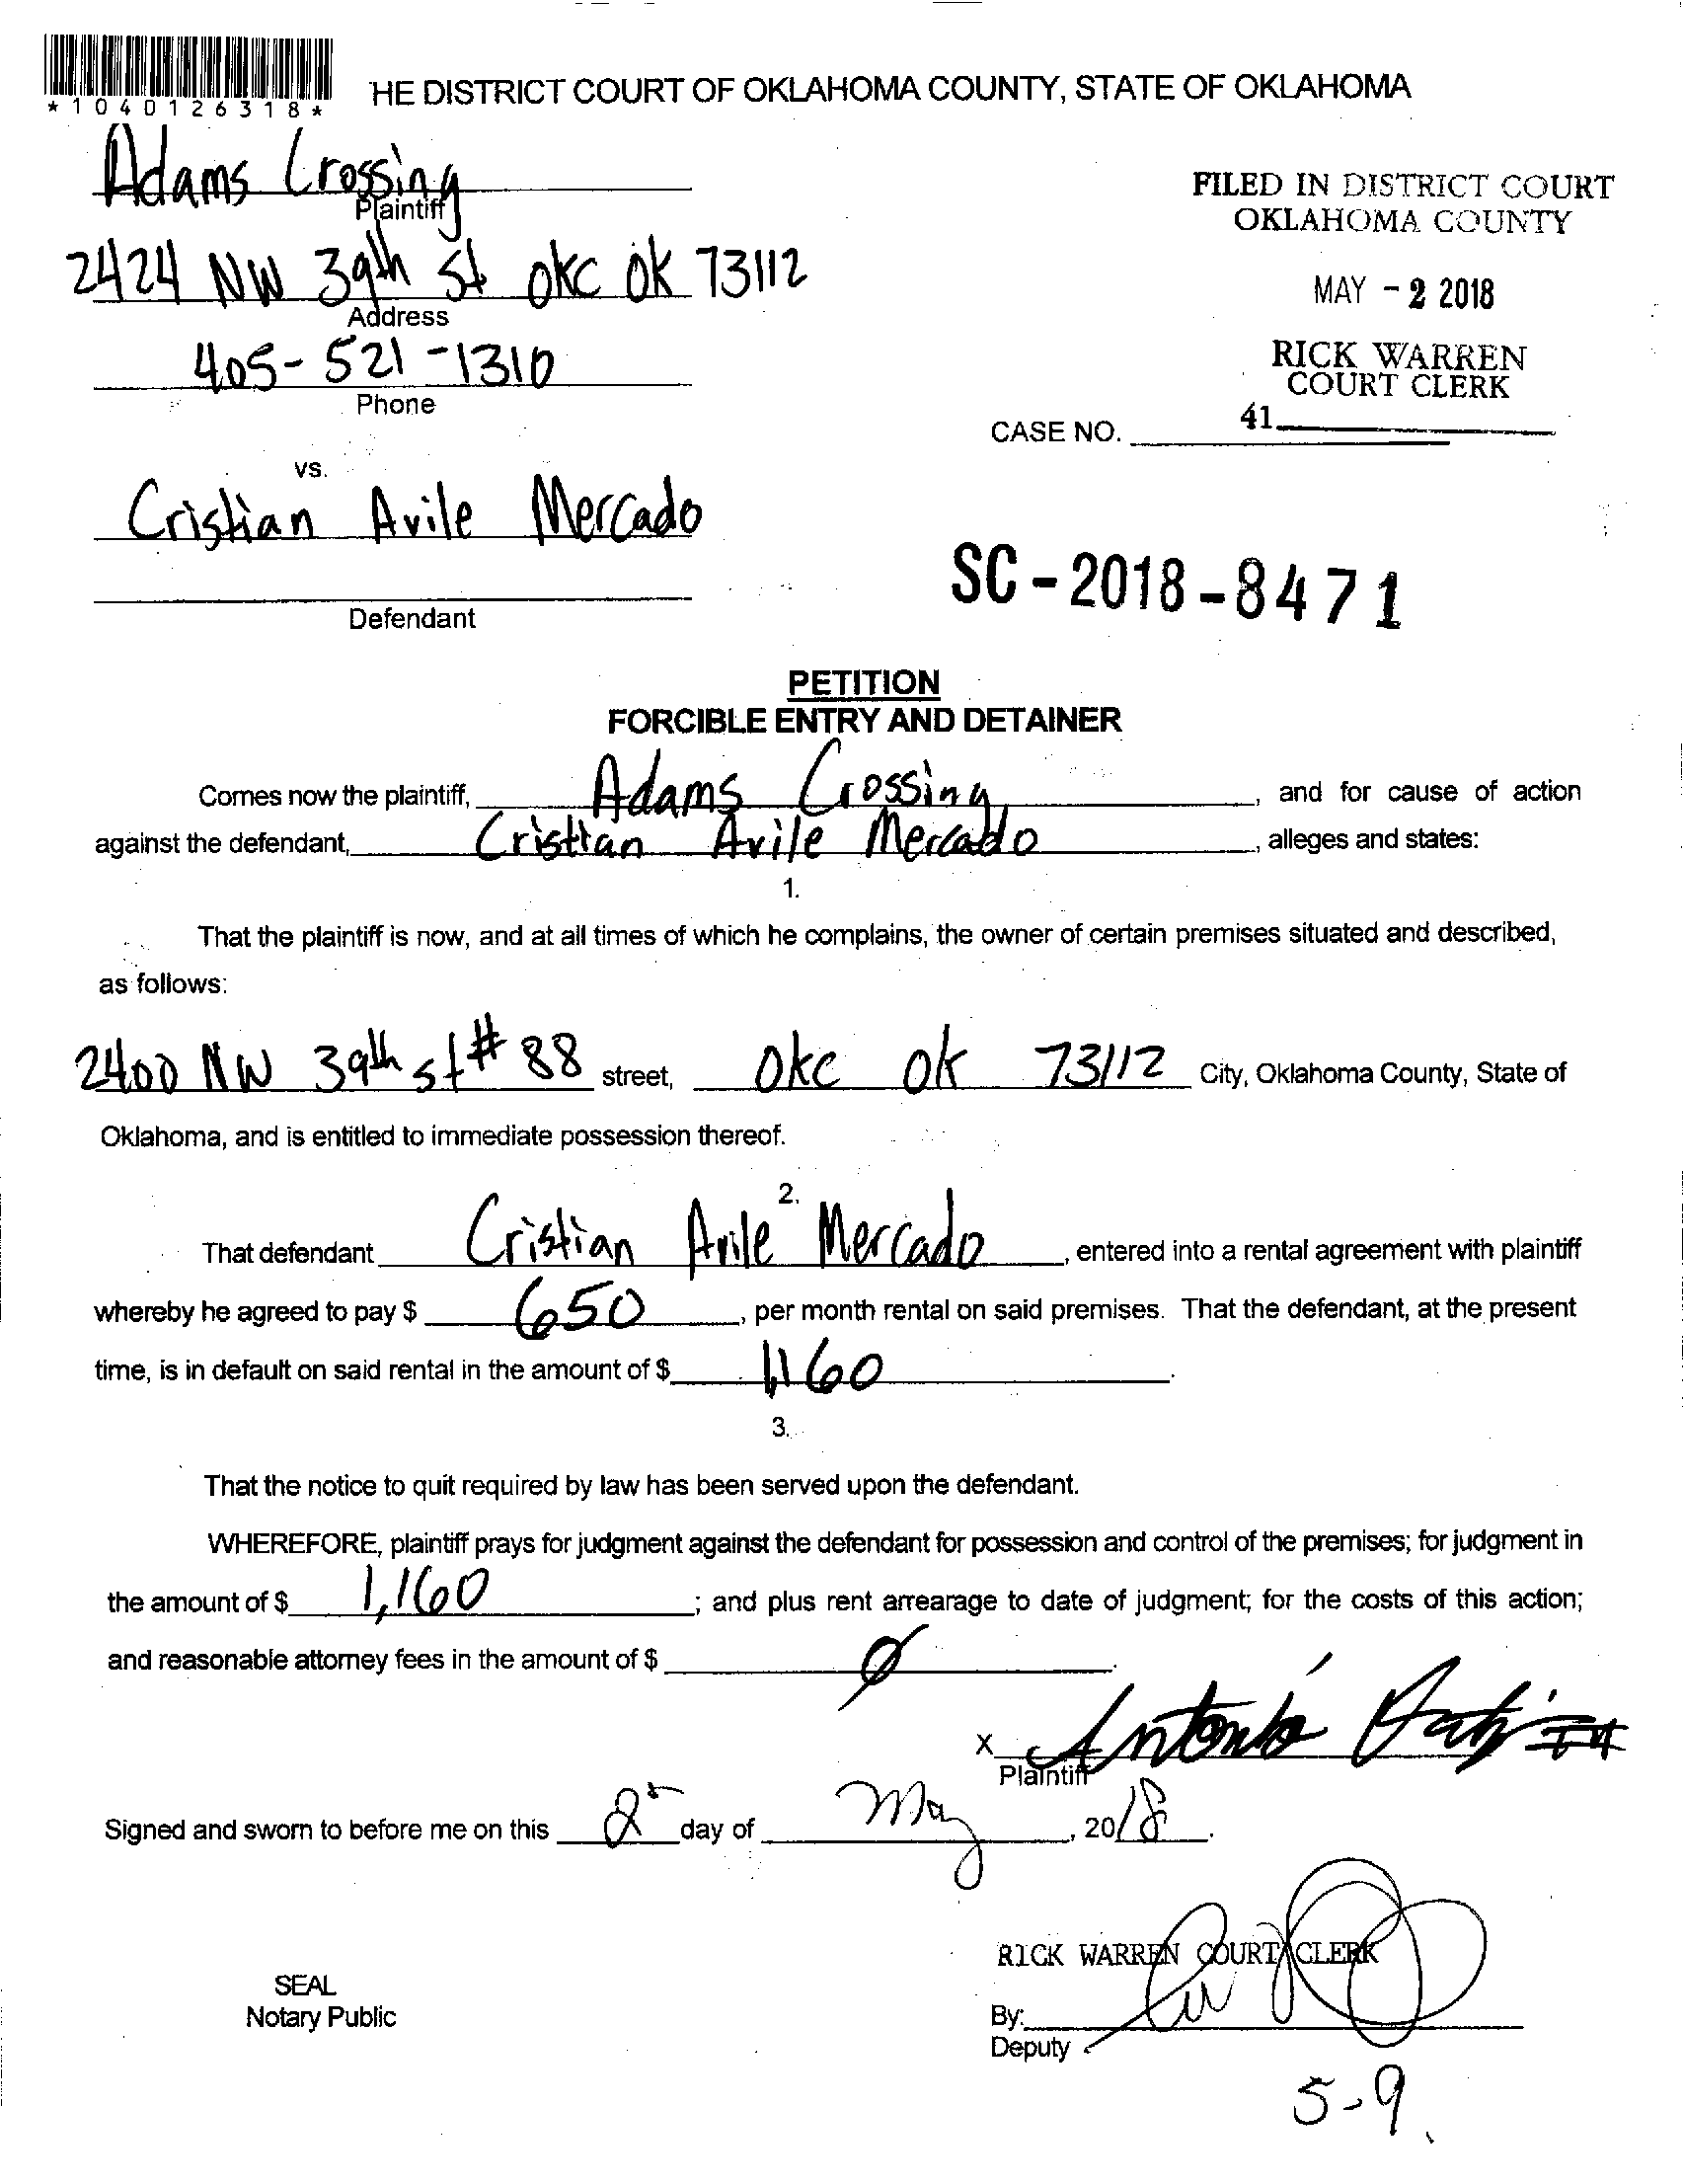 *1040126318*
HE DISTRICT COURT OF OKLAHOMA COUNTY, STATE OF OKLAHOMA
Adams Crossing
Plaintiff
FILED IN DISTRICT COURT
OKLAHOMA COUNTY
2424 NW 39th St OKC OK 73112
Address
MAY - 2 2018
405-521-1310
Phone
RICK WARREN
COURT CLERK
CASE NO.
41
vs.
Cristian Avile Mercado
Defendant
SC-2018-8471
PETITION
FORCIBLE ENTRY AND DETAINER
Comes now the plaintiff, Adams Crossing, and for cause of action
against the defendant, Cristian Avile Mercado, alleges and states:
1.
That the plaintiff is now, and at all times of which he complains, the owner of certain premises situated and described,
as follows:
2400 NW 39th st # 88 street, OKC OK 73112 City, Oklahoma County, State of
Oklahoma, and is entitled to immediate possession thereof.
2.
That defendant Cristian Avile Mercado, entered into a rental agreement with plaintiff
whereby he agreed to pay $ 650, per month rental on said premises. That the defendant, at the present
time, is in default on said rental in the amount of $ 1,160.
3.
That the notice to quit required by law has been served upon the defendant.
WHEREFORE, plaintiff prays for judgment against the defendant for possession and control of the premises; for judgment in
the amount of $ 1,160; and plus rent arrearage to date of judgment; for the costs of this action;
and reasonable attorney fees in the amount of $ Ø.
X Antonio
Plaintiff
Signed and sworn to before me on this 2 day of May, 2018.
RICK WARREN COURT CLERK
SEAL
Notary Public
By:
Deputy
5-9